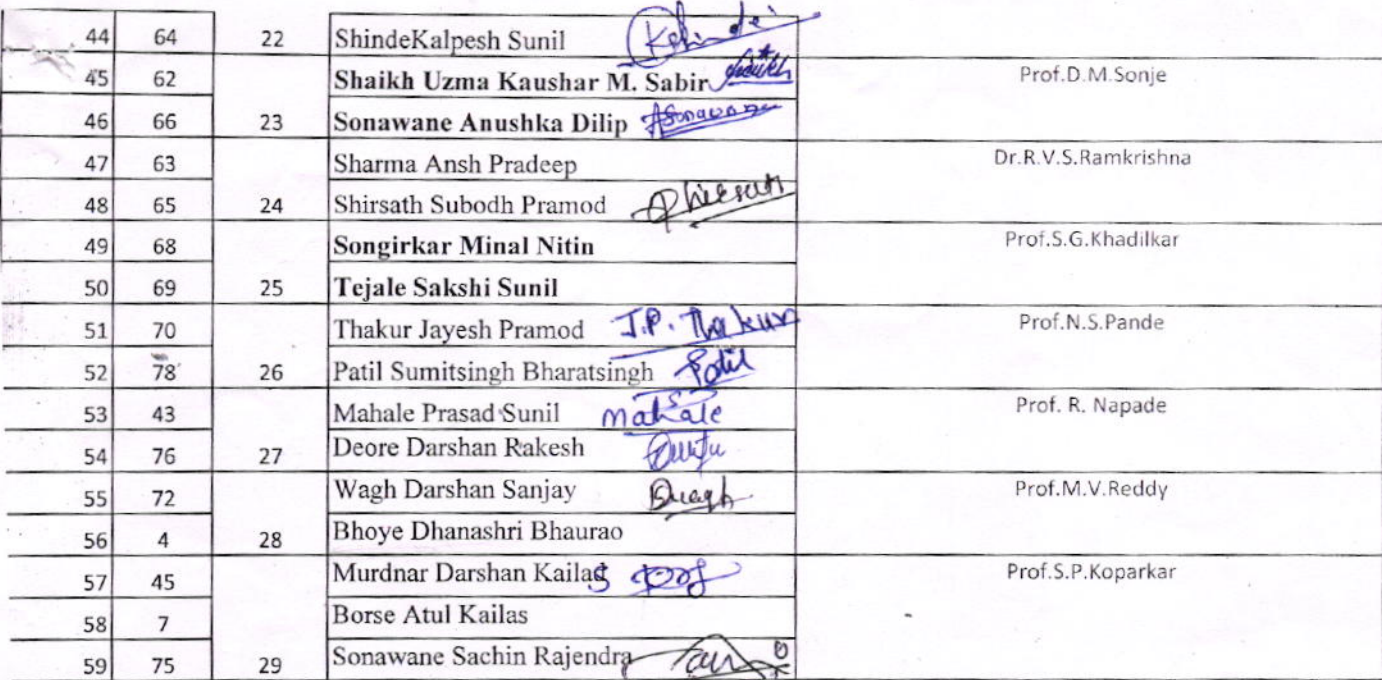 44 64 22 ShindeKalpesh Sunil Kshinde
45 62 Shaikh Uzma Kaushar M. Sabir Prof.D.M.Sonje
46 66 23 Sonawane Anushka Dilip ASonawane
47 63 Sharma Ansh Pradeep Dr.R.V.S.Ramkrishna
48 65 24 Shirsath Subodh Pramod
49 68 Songirkar Minal Nitin Prof.S.G.Khadilkar
50 69 25 Tejale Sakshi Sunil
51 70 Thakur Jayesh Pramod J.P. Thakur Prof.N.S.Pande
52 78 26 Patil Sumitsingh Bharatsingh Patil
53 43 Mahale Prasad Sunil Mahale Prof. R. Napade
54 76 27 Deore Darshan Rakesh
55 72 Wagh Darshan Sanjay Dwagh Prof.M.V.Reddy
56 4 28 Bhoye Dhanashri Bhaurao
57 45 Murdnar Darshan Kailas Prof.S.P.Koparkar
58 7 Borse Atul Kailas
59 75 29 Sonawane Sachin Rajendra